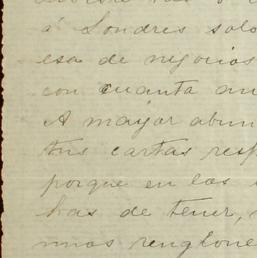 á Londres solo
esa de negocios
con cuanta an
A mayor abun
tus cartas resp
porque en las
has de tener,
unos renglone